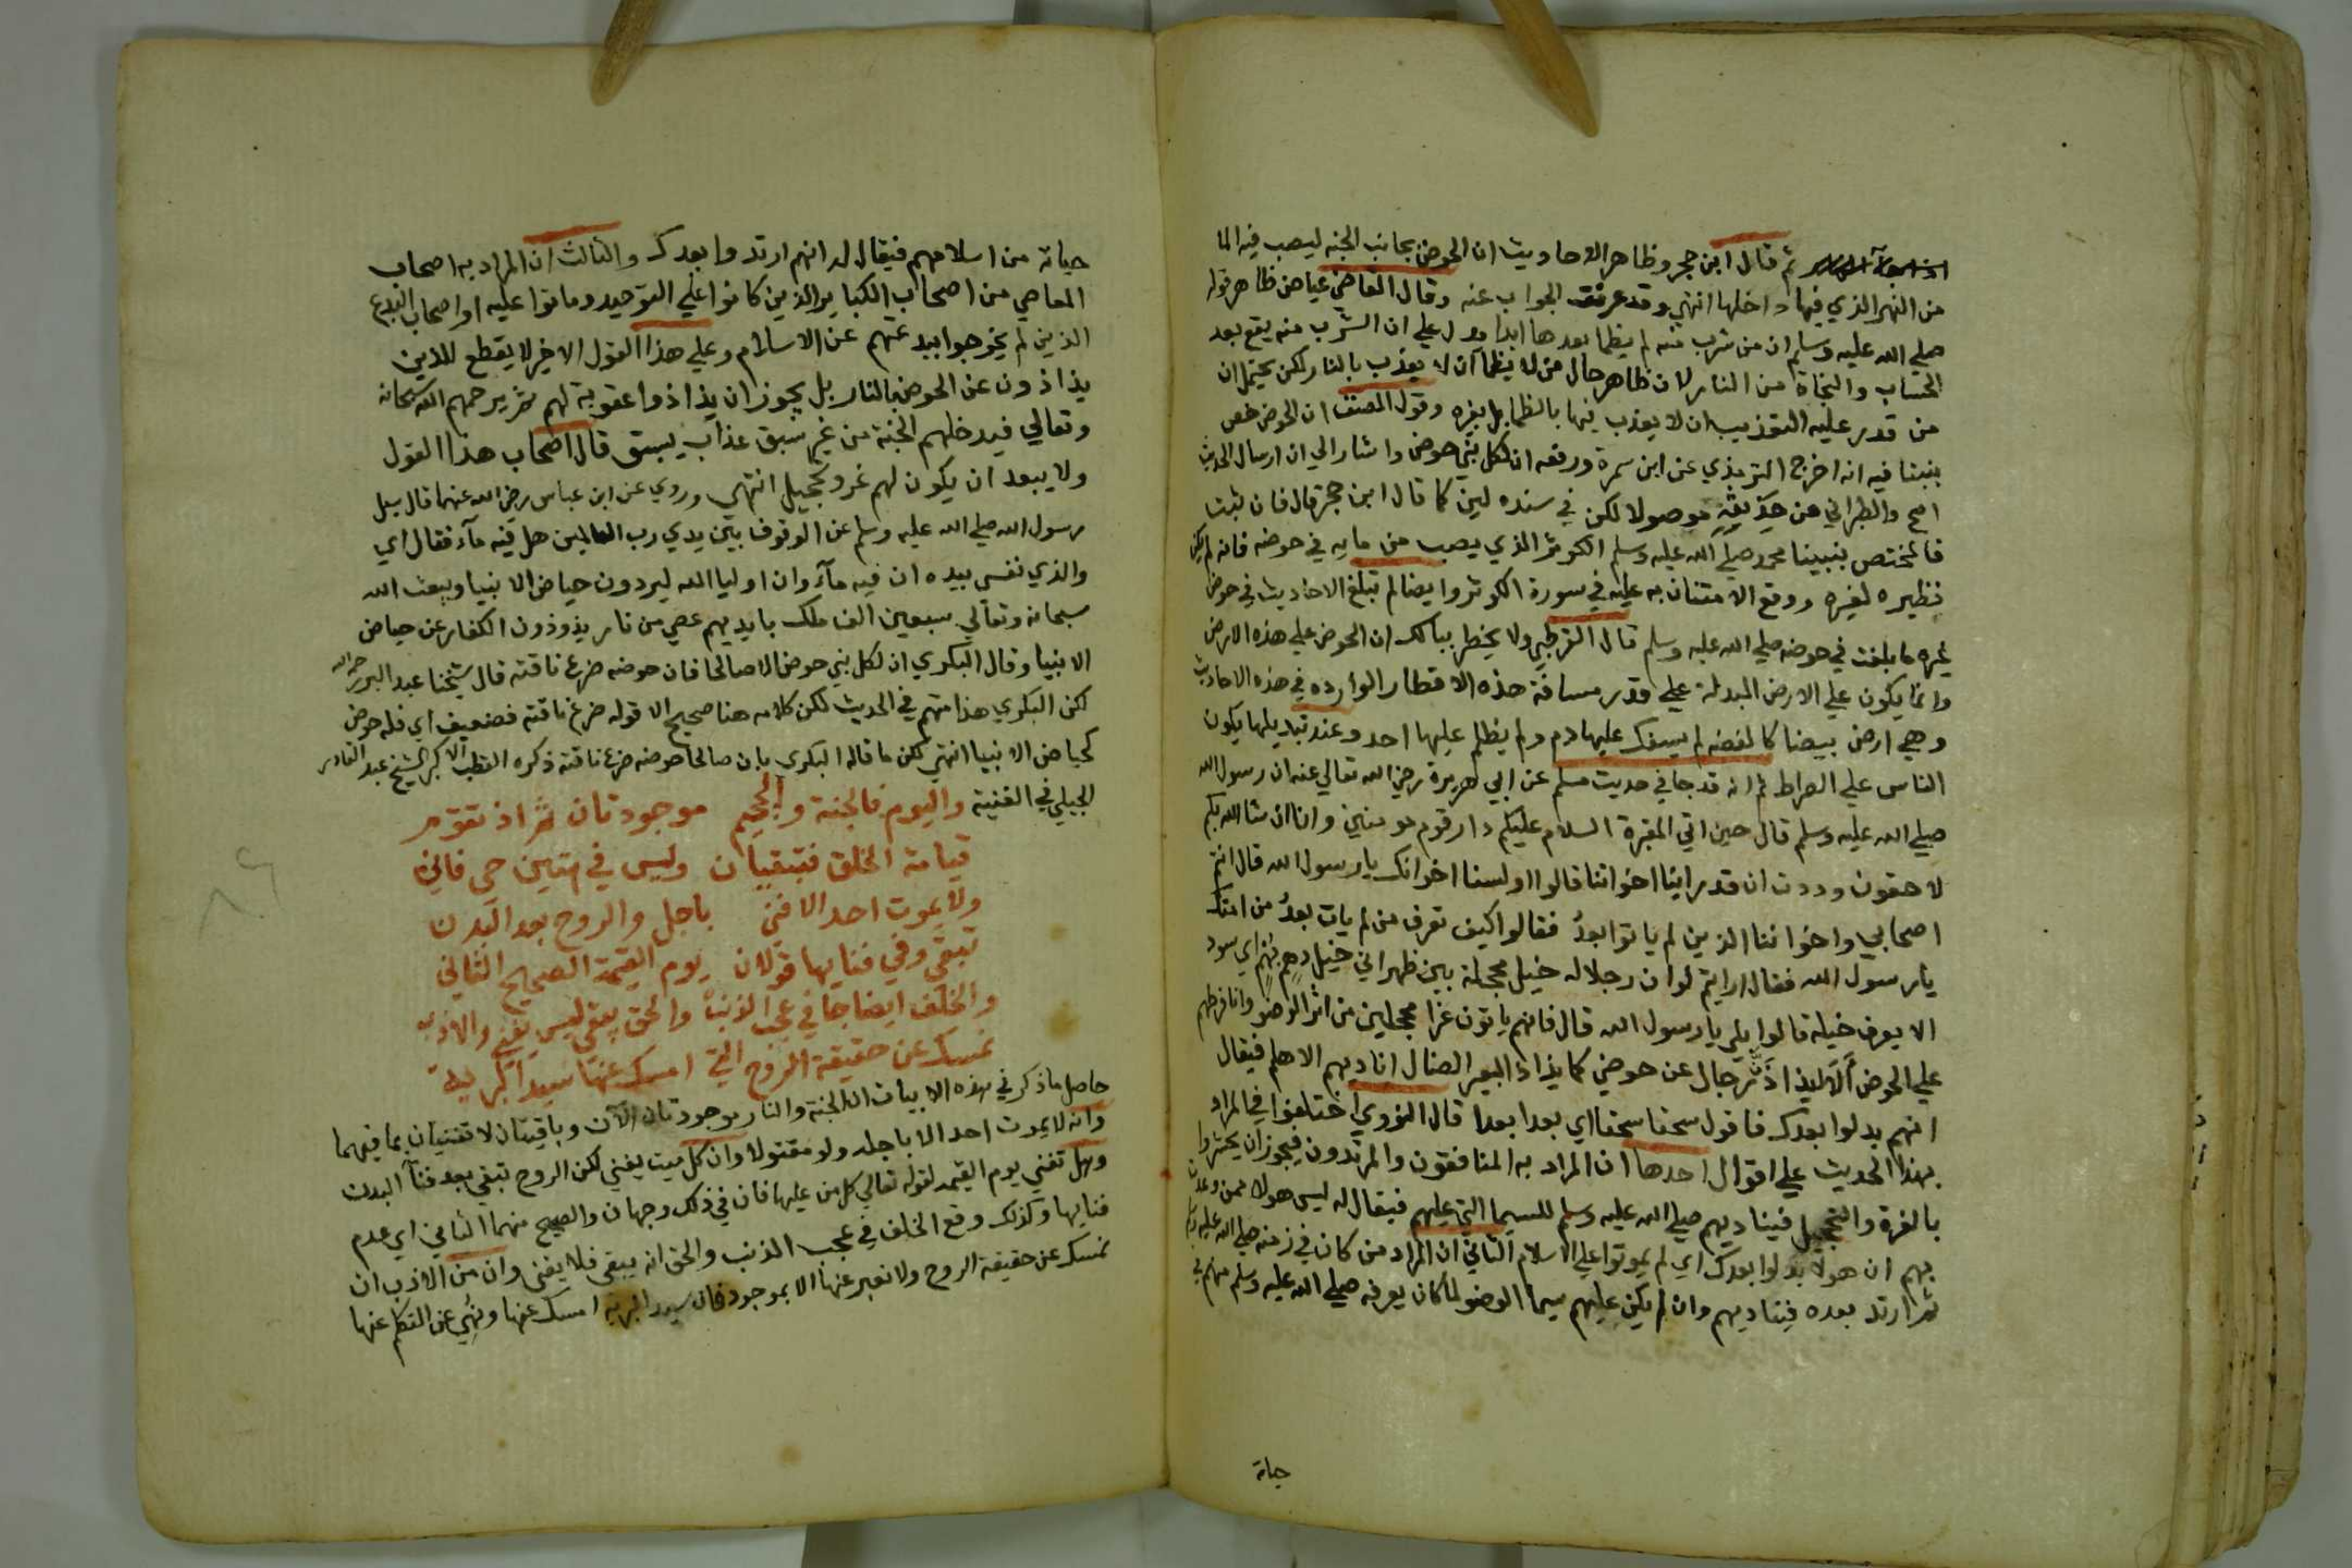 ثم قال ابن حجر وظاهر الاحاديث ان الحوض بجانب الجنه ليصب فيه الما
من النهر الذي فيها داخلها انتهي وقد عرفت الجواب عنه وقال القاضي عياض ظاهر قوله
صلي الله عليه وسلم ان من شرب منه لم يظما بعدها ابدا يدل علي ان الشرب منه يقع بعد
الحساب والنجاة من النار لان ظاهر حال من لا يظما ان لا يعذب بالنار لكن يحتمل ان
من قدر عليه التعذيب ان لا يعذب فيها بالظما بل بغيره وقول المصنف ان الحوض خص
بنبينا فيه انه اخرج الترمذي عن ابن سمرة ورفعه ان لكل نبي حوض واشار الي ان ارسال الحديث
اصح والطبراني عن حذيفة موصولا لكن في سنده لين كما قال ابن حجر قال فان ثبت
فالمختص بنبينا محمد صلي الله عليه وسلم الكوثر الذي يصب من مايه في حوضه فانه لم يكن
نظيره لغيره ووقع الامتنان به عليه في سورة الكوثر وايضا لم تبلغ الاحاديث في حوض
غيره ما بلغت في حوضه صلي الله عليه وسلم قال القرطبي ولا يخطر ببالك ان الحوض علي هذه الارض
وانما يكون علي الارض المبدلة علي قدر مسافة هذه الاقطار الوارده في هذه الاحاديث
وهي ارض بيضا كالفضه لم يسفك عليها دم ولم يظلم عليها احد وعند تبديلها يكون
الناس علي الصراط ثم انه قد جا في حديث مسلم عن ابي هريرة رضي الله تعالي عنه ان رسول الله
صلي الله عليه وسلم قال حين اتي المقبرة السلام عليكم دار قوم مومنين وانا ان شا الله بكم
لاحقون وددت ان قد راينا اخواننا قالوا اولسنا اخوانك يا رسول الله قال انتم
اصحابي واخواننا الذين لم ياتوا بعدُ فقالوا كيف تعرف من لم يات بعدُ من امتك
يا رسول الله فقال ارايتم لو ان رجلا له خيل محجلة بين ظهراني خيل دهم بهم اي سود
الا يعرف خيله قالوا بلي يا رسول الله قال فانهم ياتون غرا محجلين من اثر الوضو وانا فرطهم
علي الحوض أَلَا ليذادَنَّ رجال عن حوضي كما يذاد البعير الضال اناديهم الا هلم فيقال
انهم بدلوا بعدك فاقول سحقا سحقا اي بعدا بعدا قال النووي اختلفوا في المراد
بهذا الحديث علي اقوال احدها ان المراد به المنافقون والمرتدون فيجوز ان يحشروا
بالغرة والتحجيل فيناديهم صلي الله عليه وسلم للسيما التي عليهم فيقال له ليس هولا ممن وعدت
بهم ان هولا بدلوا بعدك اي لم يموتوا علي الاسلام الثاني ان المراد من كان في زمنه صلي الله عليه وسلم
ثم ارتد بعده فيناديهم وان لم يكن عليهم سيما الوضو لما كان يعرفه صلي الله عليه وسلم منهم في
حياته
حياته من اسلامهم فيقال له انهم ارتدوا بعدك والثالث ان المراد به اصحاب
المعاصي من اصحاب الكباير الذين كانوا علي التوحيد وماتوا عليه او اصحاب البدع
الذين لم يخرجوا ببدعتهم عن الاسلام وعلي هذا القول الاخير لا يقطع للذين
يذادون عن الحوض بالنار بل يجوز ان يذادوا عقوبة لهم ثم يرحمهم الله سبحانه
وتعالي فيدخلهم الجنة من غير سبق عذاب يسبق قال اصحاب هذا القول
ولا يبعد ان يكون لهم غر وتحجيل انتهي وروي عن ابن عباس رضي الله عنهما قال سيل
رسول الله صلي الله عليه وسلم عن الوقوف بين يدي رب العالمين هل فيه مآء فقال اي
والذي نفسي بيده ان فيه مآء وان اوليا الله ليردون حياض الانبيا ويبعث الله
سبحانه وتعالي سبعين الف ملك بايديهم عصي من نار يذودون الكفار عن حياض
الانبيا وقال البكري ان لكل نبي حوض الا صالحا فان حوضه ضرع ناقته قال شيخنا عبد البر رحمه الله
لكن البكري هذا متهم في الحديث لكن كلامه هنا صحيح الا قوله ضرع ناقته فضعيف اي فله حوض
كحياض الانبيا انتهي لكن ما قاله البكري بان صالحا حوضه ضرع ناقته ذكره القطب الاكبر الشيخ عبد القادر
الجيلي في الغنية واليوم فالجنة والجحيم موجودتان ثم اذ تقوم
قيامة الخلق فتبقيان وليس في هتين حي فاني
ولا يموت احد الا فني باجل والروح بعد البدن
تبقي وفي فنايها قولان يوم القيمة الصحيح الثاني
والخلف ايضا جا في عجب الذنب والحق يبقي ليس يفني والادب
نمسك عن حقيقة الروح التي امسك عنها سيد البرية
حاصل ما ذكر في هذه الابيات ان الجنة والنار موجودتان الآن وباقيتان لا تفنيان بما فيهما
وانه لا يموت احد الا باجله ولو مقتولا وان كل ميت يفني لكن الروح تبقي بعد فنآ البدن
وهل تفني يوم القيمه لقوله تعالي كل من عليها فان في ذلك وجهان والصحيح منهما الثاني اي عدم
فنايها وكذلك وقع الخلف في عجب الذنب والحق انه يبقي فلا يفني وان من الادب ان
نمسك عن حقيقة الروح ولا نعبر عنها الا بموجود فان سيد البريه امسك عنها ونُهي عن التكلم عنها